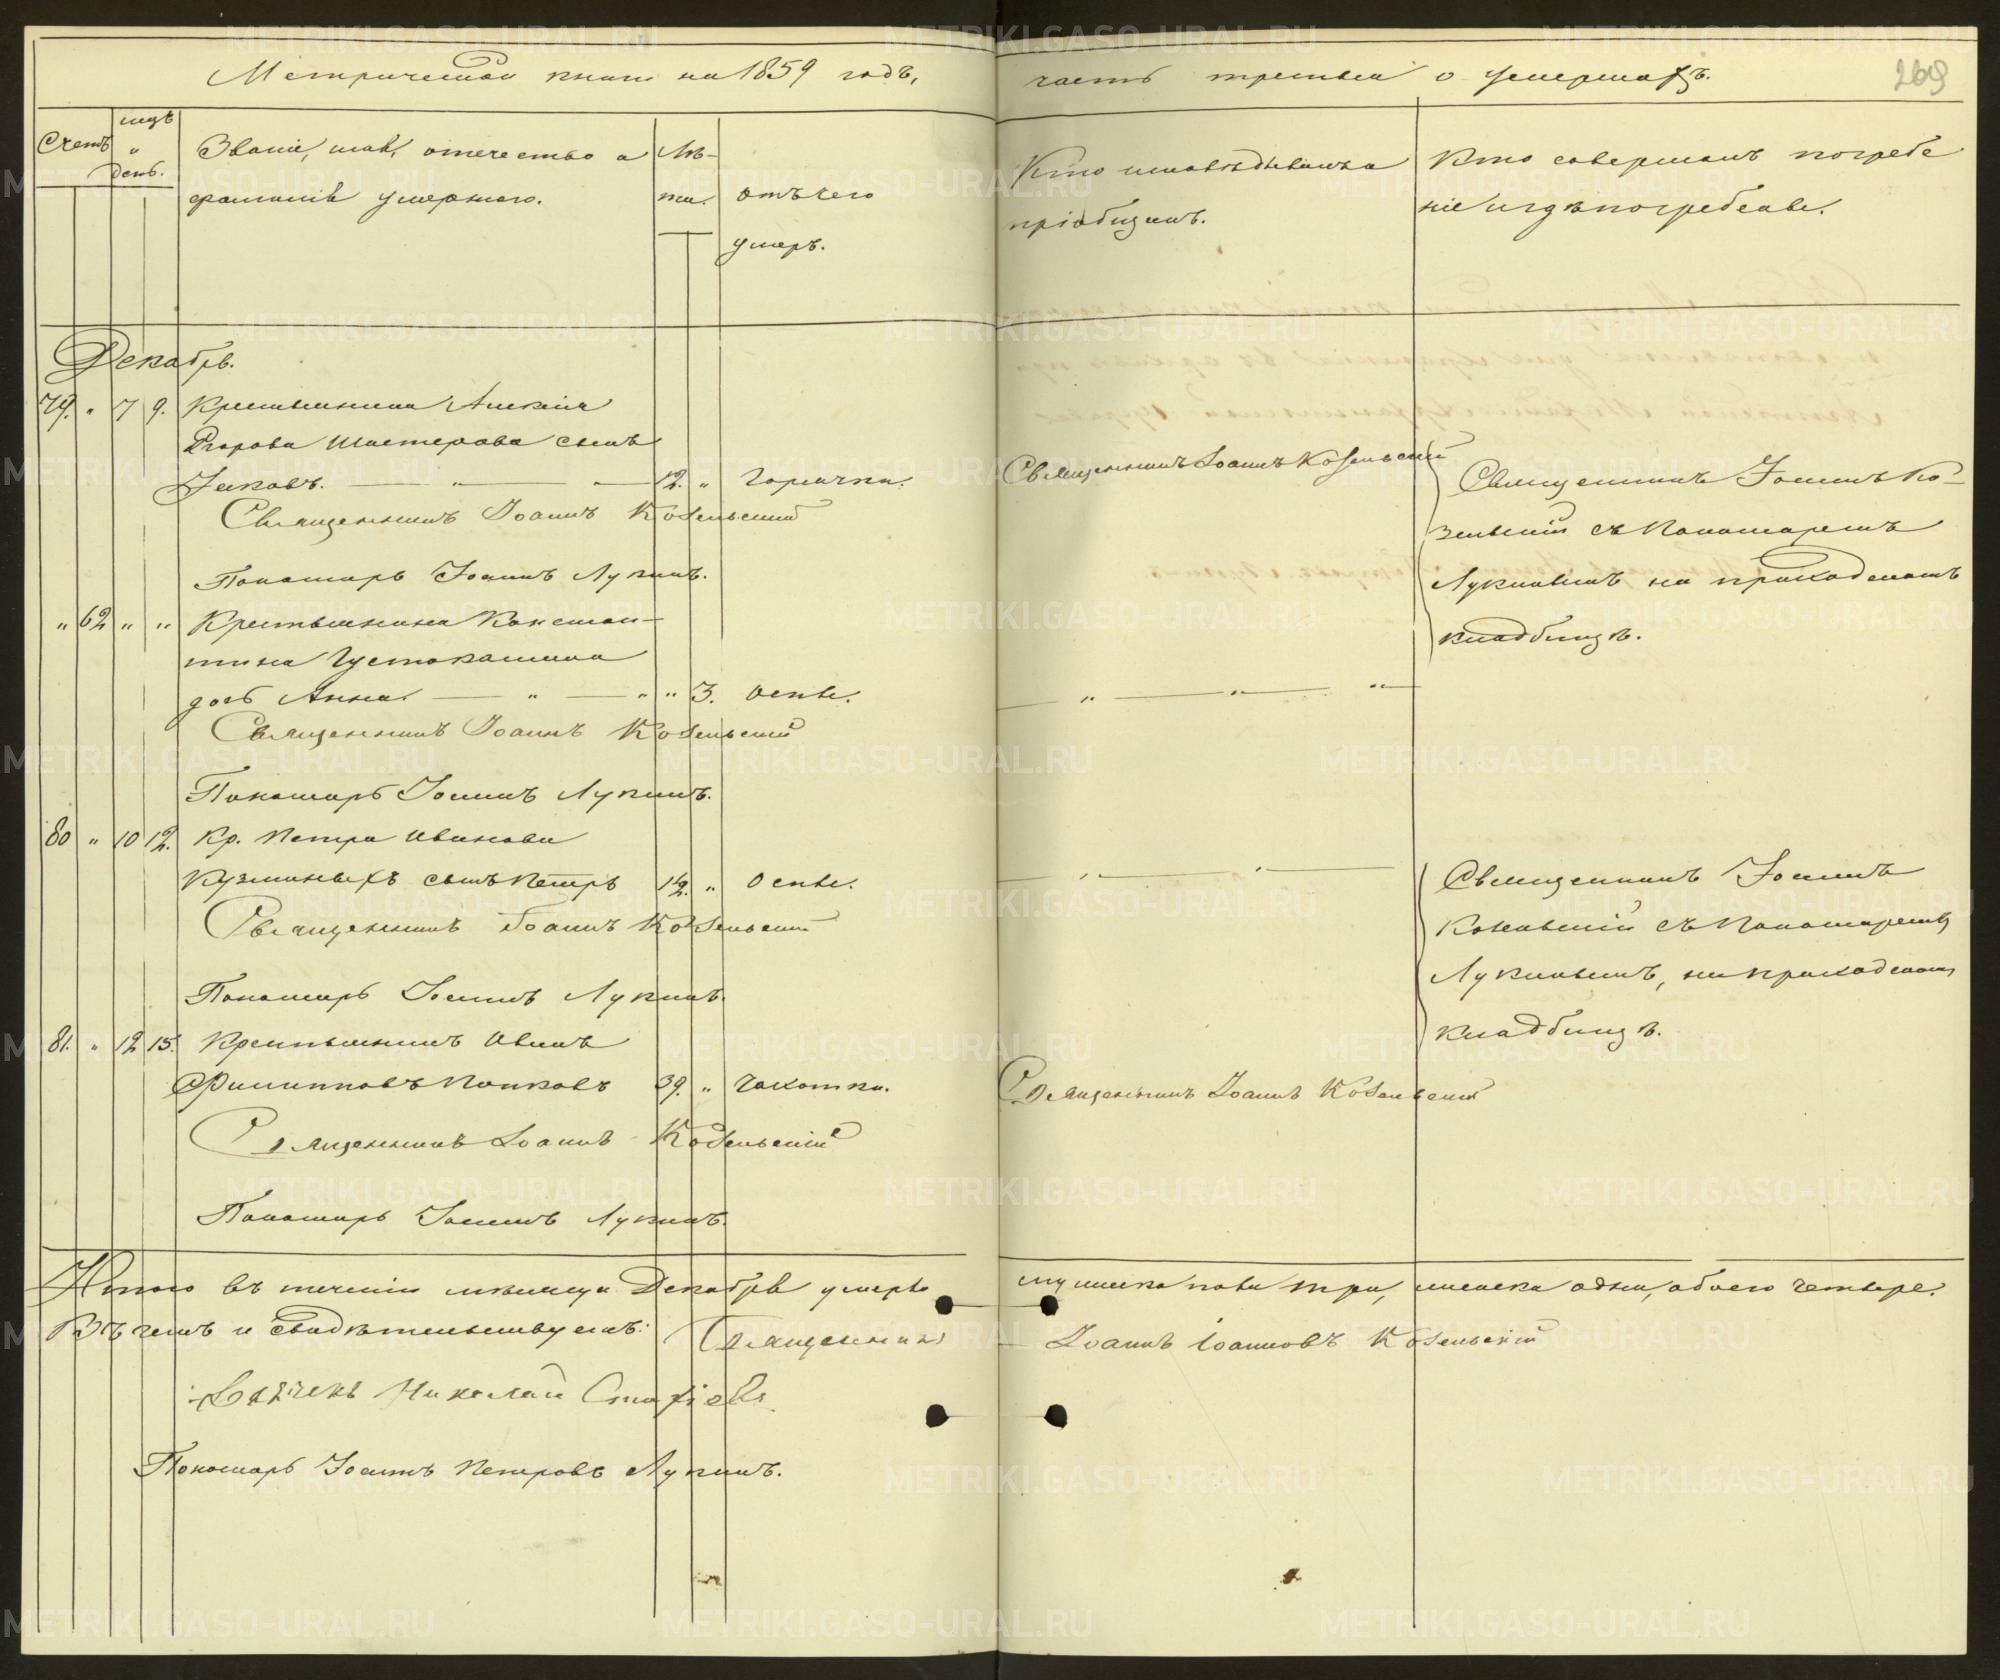 Метрической книги на 1859 годъ, часть третья о умершихъ.
269
Счетъ
мцъ
"
день.
Званіе, имя, отечество и
фамилія умершаго.
Лѣ-
та.
отъ чего
умеръ.
Кто исповѣдывалъ и
пріобщалъ.
Кто совершалъ погребе
ніе и гдѣ погребены.
Декабрь.
79. " 7 9. Крестьянина Алексія
Егорова Шастерова сынъ
Іаковъ. — " — " — 12. " Горячки.
Священникъ Іоаннъ Козельскій
Священникъ Іоаннъ Козельскій
Пономарь Іоаннъ Лукинъ.
Священникъ Іоаннъ Ко-
зельскій съ Пономаремъ
Лукинымъ на приходскомъ
кладбищѣ.
" 62 " " Крестьянина Констан-
тина Густокашина
дочь Анна. — " — " " 3. Оспы.
" — " — " —
Священникъ Іоаннъ Козельскій
Пономарь Іоаннъ Лукинъ.
80 " 10 12. Кр. Петра Иванова
Кузминыхъ сынъ Петръ 12. " Оспы.
Священникъ Іоаннъ Козельскій
Пономарь Іоаннъ Лукинъ.
Священникъ Іоаннъ
Козельскій съ Пономаремъ
Лукинымъ, на приходскомъ
кладбищѣ.
81. " 12 15. Крестьянинъ Иванъ
Филипповъ Попковъ 39. " Чахотки.
Священникъ Іоаннъ Козельскій
Священникъ Іоаннъ Козельскій
Пономарь Іоаннъ Лукинъ.
Итого въ теченіи мѣсяца Декабря умерло мужеска пола три, женска одна, обоего четверо.
Въ чемъ и свидѣтельствуемъ: Священникъ Іоаннъ Іоанновъ Козельскій
Николай
Пономарь Іоаннъ Петровъ Лукинъ.
METRIKI.GASO-URAL.RU